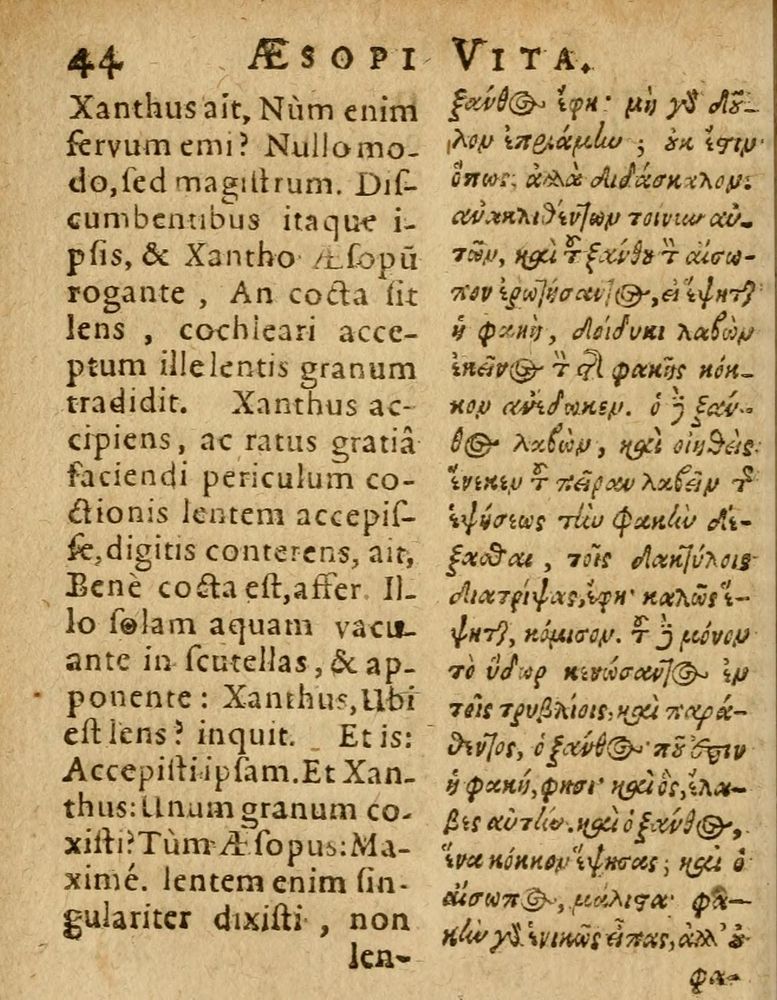 44 ÆSOPI VITA.
Xanthus ait, Nùm enim
servum emi? Nullo mo-
do, sed magistrum. Dis-
cumbentibus itaque i-
psis, & Xantho Æsopū
rogante, An cocta sit
lens, cochleari acce-
ptum ille lentis granum
tradidit. Xanthus ac-
cipiens, ac ratus gratiâ
faciendi periculum co-
ctionis lentem accepis-
se, digitis conterens, ait,
Benè cocta est, affer. Il-
lo solam aquam vacu-
ante in scutellas, & ap-
ponente: Xanthus, Ubi
est lens? inquit. Et is:
Accepisti ipsam. Et Xan-
thus: Unum granum co-
xisti? Tùm Æsopus: Ma-
ximé. lentem enim sin-
gulariter dixisti, non
len-
ξανθος ἔφη· μὴ γὰρ δοῦ-
λον ἐπριάμην; οὐκ ἔστιν
ὅπως, ἀλλὰ διδάσκαλον.
ἀνακλιθέντων τοίνυν αὐ-
τῶν, καὶ τοῦ ξάνθου τὸν αἴσω-
πον ἐρωτήσαντος, εἰ ἕψηται
ἡ φακὴ, δοίδυκι λαβὼν
ἐκεῖνος τὸν τῆς φακῆς κόκ-
κον ἀνέδωκεν. ὁ δὲ ξάν-
θος λαβὼν, καὶ οἰηθεὶς
ἕνεκεν τοῦ πεῖραν λαβεῖν τῆς
ἑψήσεως τὴν φακὴν δέ-
ξασθαι, τοῖς δακτύλοις
διατρίψας, ἔφη· καλῶς ἕ-
ψηται, κόμισον. τοῦ δὲ μόνον
τὸ ὕδωρ κενώσαντος ἐν
τοῖς τρυβλίοις, καὶ παρα-
θέντος, ὁ ξάνθος· ποῦ ἐστιν
ἡ φακή, φησι· καὶ ὃς, ἔλα-
βες αὐτήν. καὶ ὁ ξάνθος,
ἕνα κόκκον ἕψησας; καὶ ὁ
αἴσωπος, μάλιστα· φα-
κὴν γὰρ ἑνικῶς εἶπας, ἀλλ' οὐ
φα-